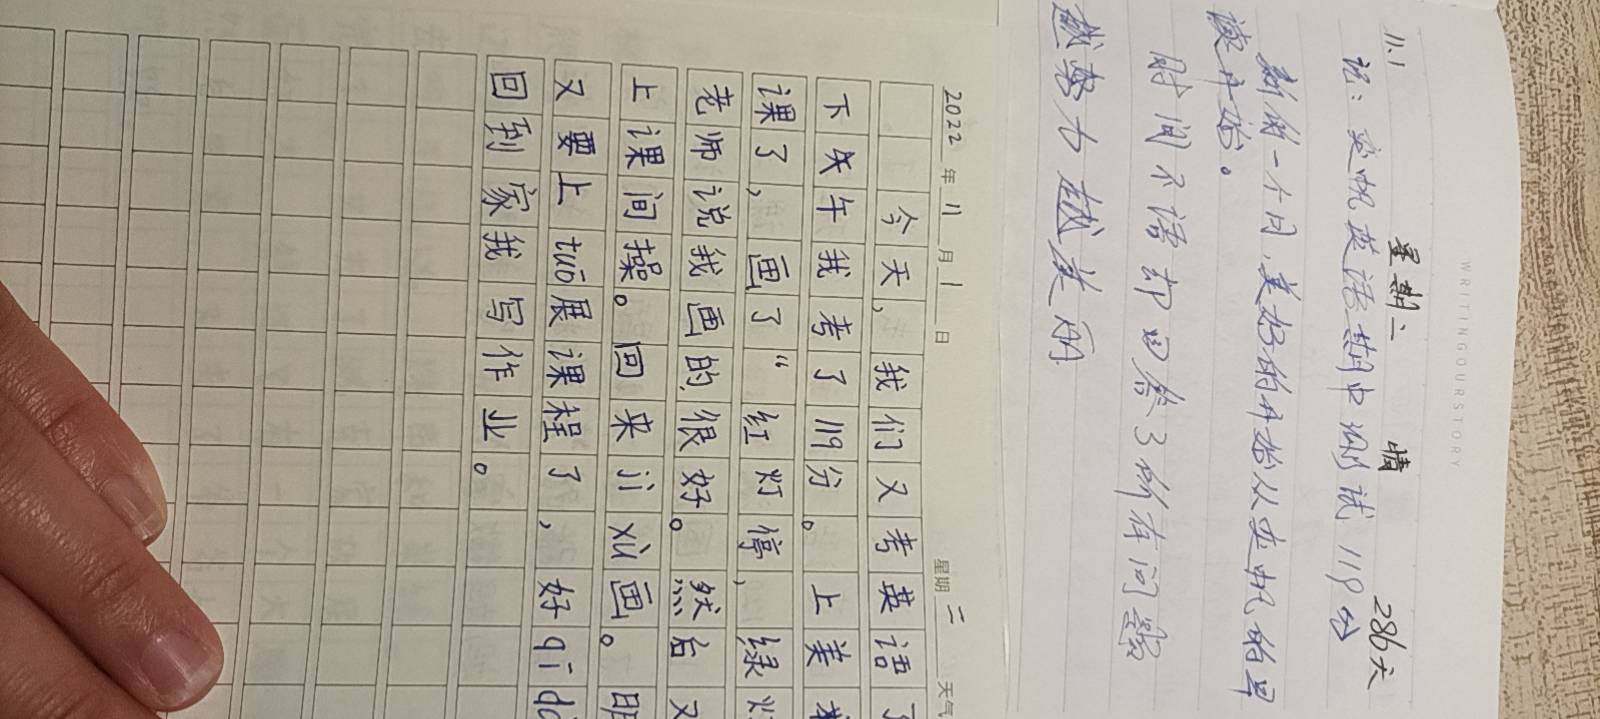 WRITING OUR STORY
11.1 星期二 晴 286天
记: 安帆英语期中测试119分
新的一个月,美好的开始从安帆的早
读开始。
时间不语却回答了所有问题
越努力越美丽
2022年11月1日 星期二 天气
今天,我们又考英语了
下午我考了119分。上美术
课了,画了“红灯停,绿灯
老师说我画的很好。然后又
上课间操。回来jì xù画。明
又要上tuō展课程了,好qī dà
回到家我写作业。